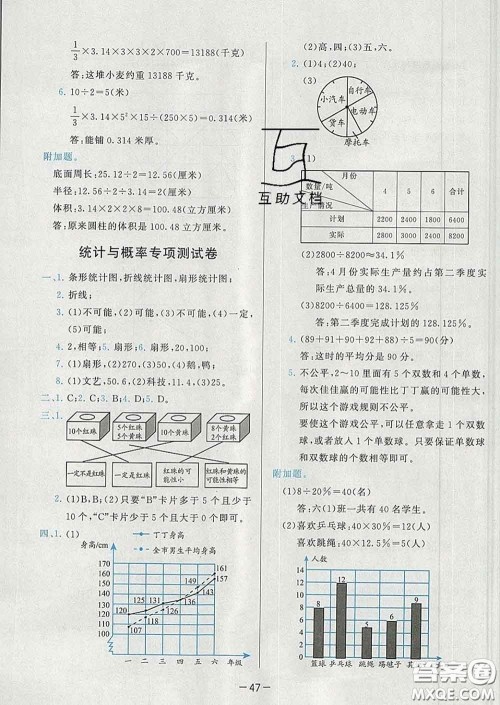 1/3×3.14×3×3×2×700=13188(千克)
答:这堆小麦约重13188千克。
6. 10÷2=5(米)
1/3×3.14×5²×3÷(250×5)=0.314(米)
答:能铺0.314米厚。
附加题。
底面周长:25.12÷2=12.56(厘米)
半径:12.56÷3.14÷2=2(厘米)
体积:3.14×2×2×8=100.48(立方厘米)
答:原来圆柱的体积是100.48立方厘米。
统计与概率专项测试卷
一、1. 条形统计图,折线统计图,扇形统计图;
2. 折线;
3. (1)不可能,(2)可能,(3)不可能,(4)一定,
(5)可能;
4. 2,相等;5. 扇形;6. 扇形,20,100;
7. (1)扇形,(2)360,50,(4)鹅,鸭;
8. (1)文艺,50,(2)60,(3)科技,11.1,(4)50。
二、1. C;2. C;3. D;4. B;5. D。
三、1.
10个红珠
5个红珠
5个黄珠
10个黄珠
8个黄珠
2个红珠
一定不是红珠
一定是红珠
红珠的可
能性小
红珠和黄珠的可
能性相等
2. (1)B,B;(2)只要“B”卡片多于5个且少于
10个,“C”卡片少于5个且大于0个即可。
四、1. (1)
丁丁身高
全市男生平均身高
身高/cm
170
160
150
140
130
120
110
100
0
一 二 三 四 五 六 年级
(2)高,四;(3)五,六。
2. (1)4;(2)40;
(3)
小汽车
自行车
电动车
货车
摩托车
3. (1)
月份
数量/吨
生产情况
4 5 6 合计
计划 2200 2400 1800 6400
实际 2800 2600 2800 8200
(2)2800÷8200≈34.1%
答:4月份实际生产量约占第二季度实
际生产总量的34.1%。
(3)8200÷6400=128.125%
答:第二季度完成计划的128.125%
4. (89+91+90+92+88)÷5=90(分)
答:这时的平均分是90分。
5. 不公平,2~10里面有5个双数和4个单数,
每次佳佳赢的可能性比丁丁赢的可能性大,
所以这个游戏规则不公平。
要使这个游戏公平,可以任意拿走1个双数
球,或者任意放入1个单数球。只要保证单数球
和双数球的个数相等即可。
附加题。
(1)8÷20%=40(名)
答:六(1)班一共有40名学生。
(2)喜欢乒乓球:40×30%=12(人)
喜欢跳绳:40×12.5%=5(人)
人数
14
12
10
8
6
4
2
0
8 12 5 6 9
篮球 乒乓球 跳绳 踢毽子 其
互助文档
—47—
答案圈
MXQE.COM